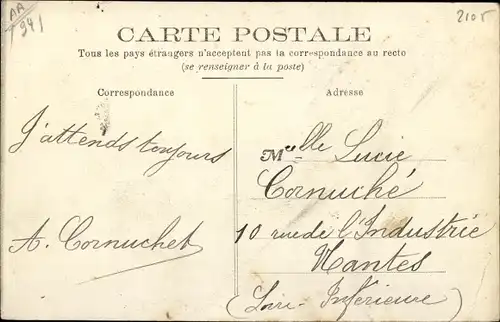 AA
941
2105
CARTE POSTALE
Tous les pays étrangers n'acceptent pas la correspondance au recto
(se renseigner à la poste)
Correspondance
Adresse
J'attends toujours
A. Cornuchet
Melle Lucie
Cornuché
10 rue de l'Industrie
Nantes
(Loire-Inférieure)